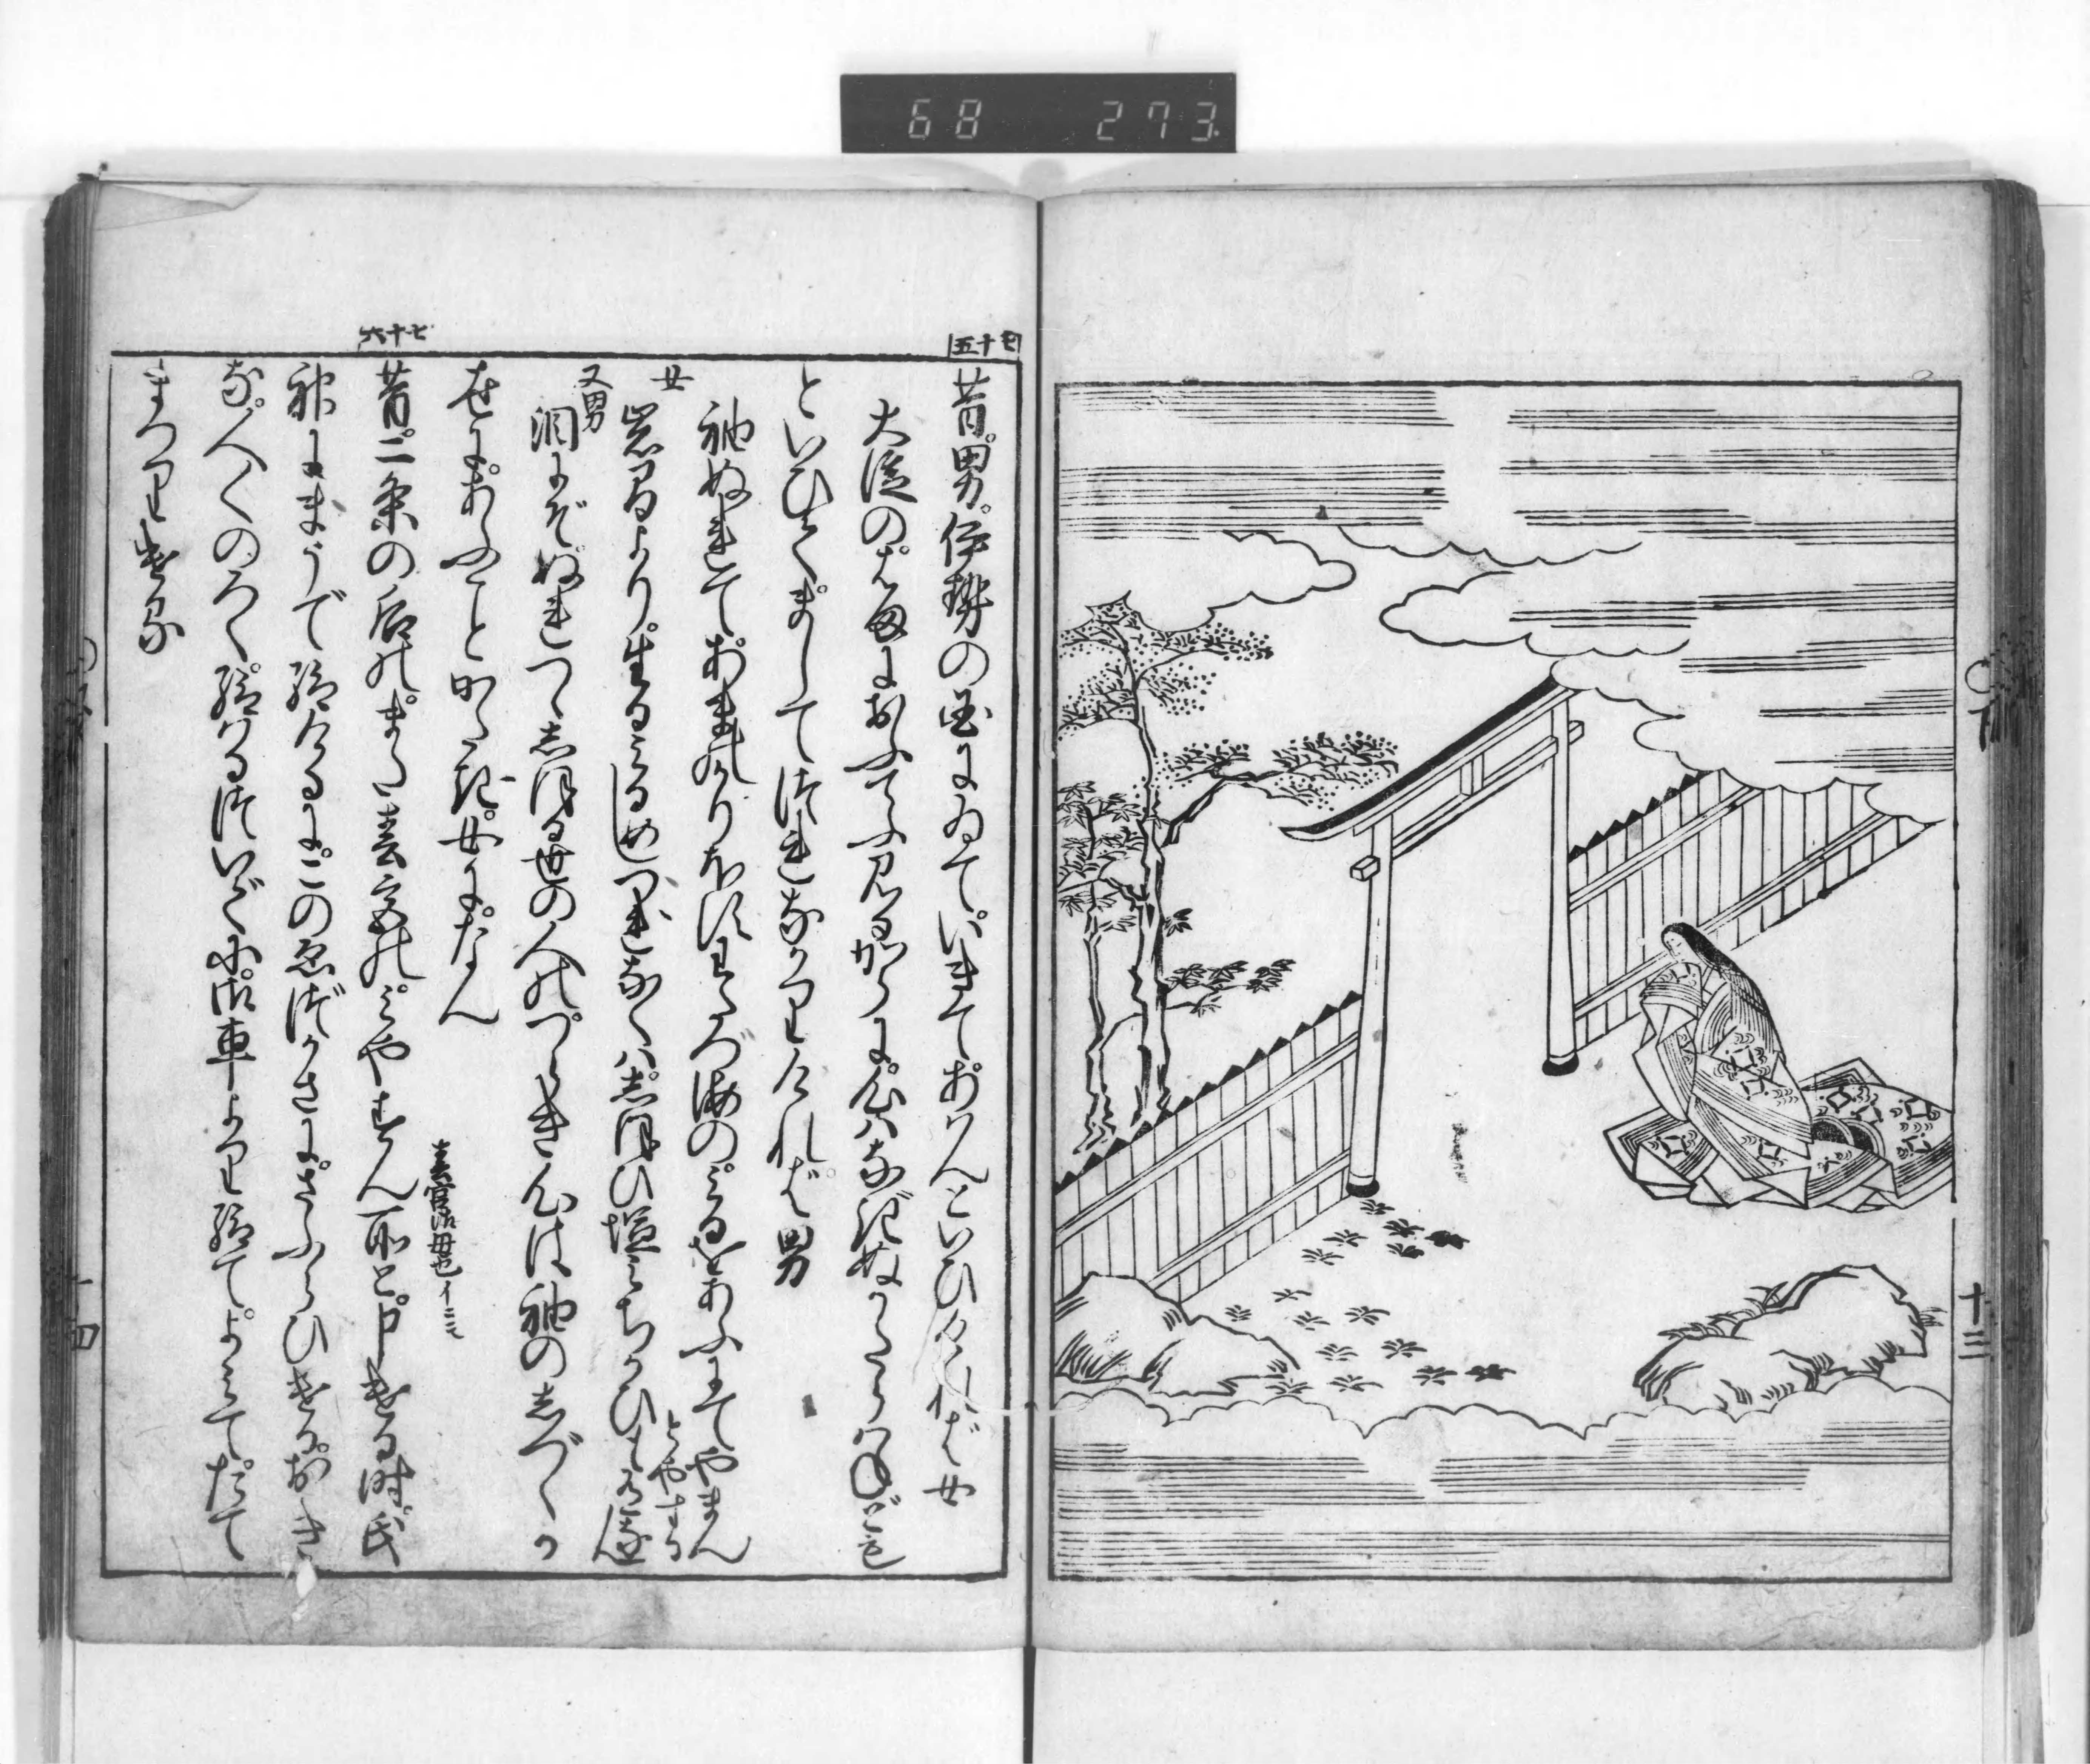 68 273.
十三
七十五
昔男。伊勢の国にゐていきてあらんといひければ女
大淀のはまにおふてふ見るからに。心はなぎぬかたらはねども
といひてましてつれなかりければ男
袖ぬれてあまのかりほすわたつ海のみるをあふにてやまん
とやする
女
岩間より。生るみるめしつれなくは。しほひ塩みちかひもありなん
又男
涙にぞぬれつゝしほる世の人のつらき心は袖のしづくか
世にあふことかたき。女になん
七十六
昔二条の后の。まだ春宮の。みやすん所と申ける時。氏
春宮御母也イニモ
神にまうで給けるに。このゑづかさにさふらひける。おき
な。人〳〵のろく給はるついでに御車より給てよみてたて
まつりける
十四